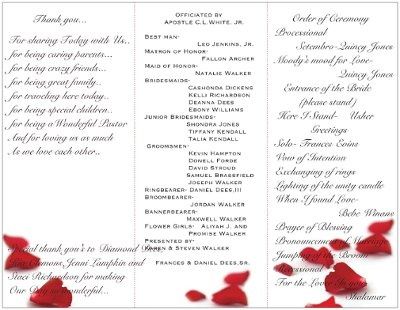 Thank you...
For sharing Today with Us..
for being caring parents...
for being crazy friends...
for being great family..
for traveling here today..
for being special children..
for being a Wonderful Pastor
And for loving us as much
As we love each other..
Special thank you's to Diamond
Clemons, Jenni Lampkin and
Staci Richardson for making
Our Day so wonderful...
Officiated by
Apostle C.L White, Jr.
Best man-
Leo Jenkins, Jr
Matron of Honor-
Fallon Archer
Maid of Honor-
Natalie Walker
Bridesmaids-
Cashonda Dickens
Kelli Richardson
Deanna Dees
Ebony Williams
Junior Bridesmaids-
Shonora Jones
Tiffany Kendall
Talia Kendall
Groomsmen-
Kevin Hampton
Dowell Forde
David Stroud
Samuel Brassfield
Joseph Walker
Ringbearer- Daniel Dees,III
Broombearer-
Jordan Walker
Bannerbearer-
Maxwell Walker
Flower Girls- Aliyah J. and
Promise Walker
Presented by-
Karen & Steven Walker
Frances & Daniel Dees,Sr.
Order of Ceremony
Processional
Setembro-Quincy Jones
Moody's mood for Love-
Quincy Jones
Entrance of the Bride
(please stand)
Here I Stand- Usher
Greetings
Solo- Frances Goins
Vow of Intention
Exchanging of rings
Lighting of the unity candle
When I found Love-
Bebe Winans
Prayer of Blessing
Pronouncement of Marriage
Jumping of the Broom
Recessional
For the Lover In you-
Shalamar